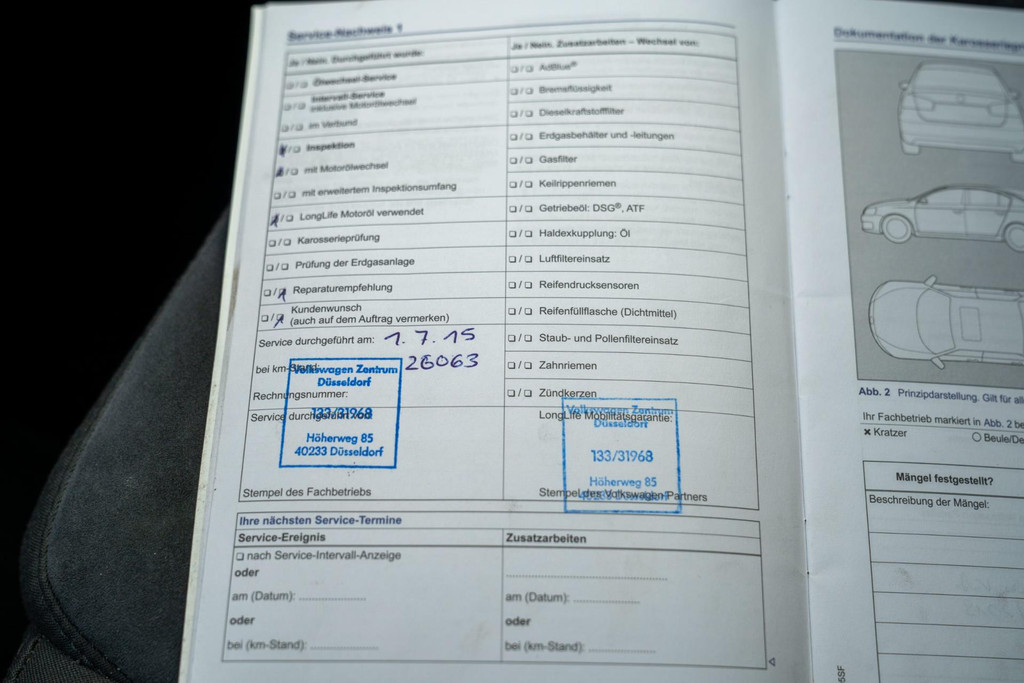 Service-Nachweis 1
Ja / Nein. Durchgeführt wurde:
Ölwechsel-Service
Intervall-Service
inklusive Motorölwechsel
im Verbund
Inspektion
mit Motorölwechsel
mit erweitertem Inspektionsumfang
LongLife Motoröl verwendet
Karosserieprüfung
Prüfung der Erdgasanlage
Reparaturempfehlung
Kundenwunsch
(auch auf dem Auftrag vermerken)
Service durchgeführt am: 1.7.15
bei km-Stand: 26063
Rechnungsnummer:
Service durchgeführt von
Volkswagen Zentrum
Düsseldorf
133/31968
Höherweg 85
40233 Düsseldorf
Stempel des Fachbetriebs
Ja / Nein. Zusatzarbeiten – Wechsel von:
AdBlue®
Bremsflüssigkeit
Dieselkraftstofffilter
Erdgasbehälter und -leitungen
Gasfilter
Keilrippenriemen
Getriebeöl: DSG®, ATF
Haldexkupplung: Öl
Luftfiltereinsatz
Reifendrucksensoren
Reifenfüllflasche (Dichtmittel)
Staub- und Pollenfiltereinsatz
Zahnriemen
Zündkerzen
LongLife Mobilitätsgarantie:
Volkswagen Zentrum
Düsseldorf
133/31968
Höherweg 85
40233 Düsseldorf
Stempel des Volkswagen Partners
Ihre nächsten Service-Termine
Service-Ereignis
nach Service-Intervall-Anzeige
oder
am (Datum):
oder
bei (km-Stand):
Zusatzarbeiten
am (Datum):
oder
bei (km-Stand):
Dokumentation der
Abb. 2 Prinzipdarstellung. Gilt für
Ihr Fachbetrieb markiert in Abb. 2
Kratzer
Mängel festgestellt?
Beschreibung der Mängel: